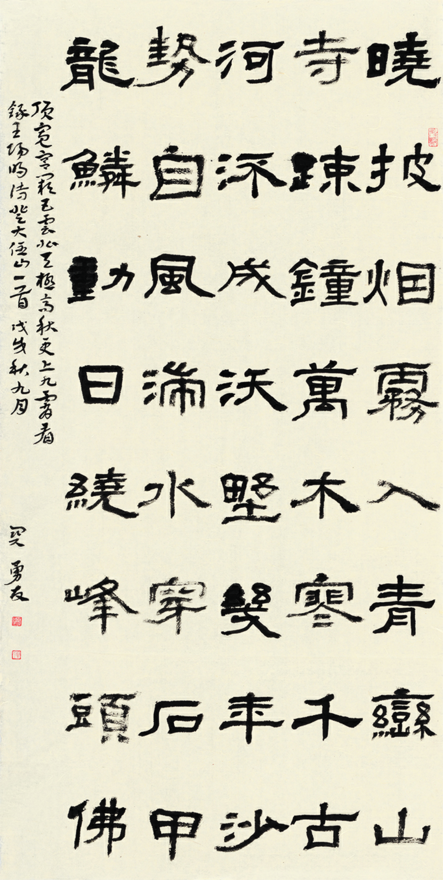 曉披烟霧入青巒山
寺踈鐘萬木寒千古
河流成沃墅幾年沙
勢自風湍水穿石甲
龍鱗動日繞峰頭佛
頂寬宮闕五雲北天極高秋更上九霄看
録王陽明詩登大伾山一首 戊戌秋九月
勇友